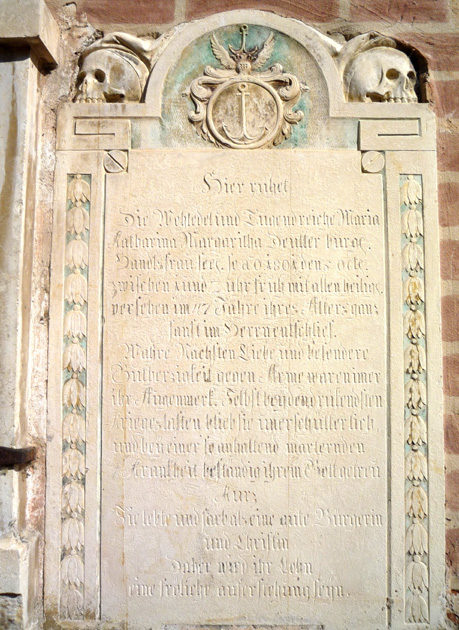 Hier ruhet
die Wohledel und Tugendreiche Maria
Katharina Margaritha
Handlsfrau seel. so ao 1801 den 2 octo:
zwischen 1 und 2 uhr früh mit allen heilige
versehen im 47 Jahre ihres Alters ganz
sanft im Herrn entschlief.
Wahre Nächsten Liebe und besondere
Gutherzigkeit gegen Arme waren imer
ihr Augenmerk. Selbst bey den
Kriegslasten blieb sie unerschütterlich
und bey einer so anhaltend marternden
Krankheit beständig ihrem Gott getreu
Kurz
Sie lebte und starb als eine gute Bürgerin
und Christin
Daher wird ihr Lohn
eine fröliche auferstehung seyn.